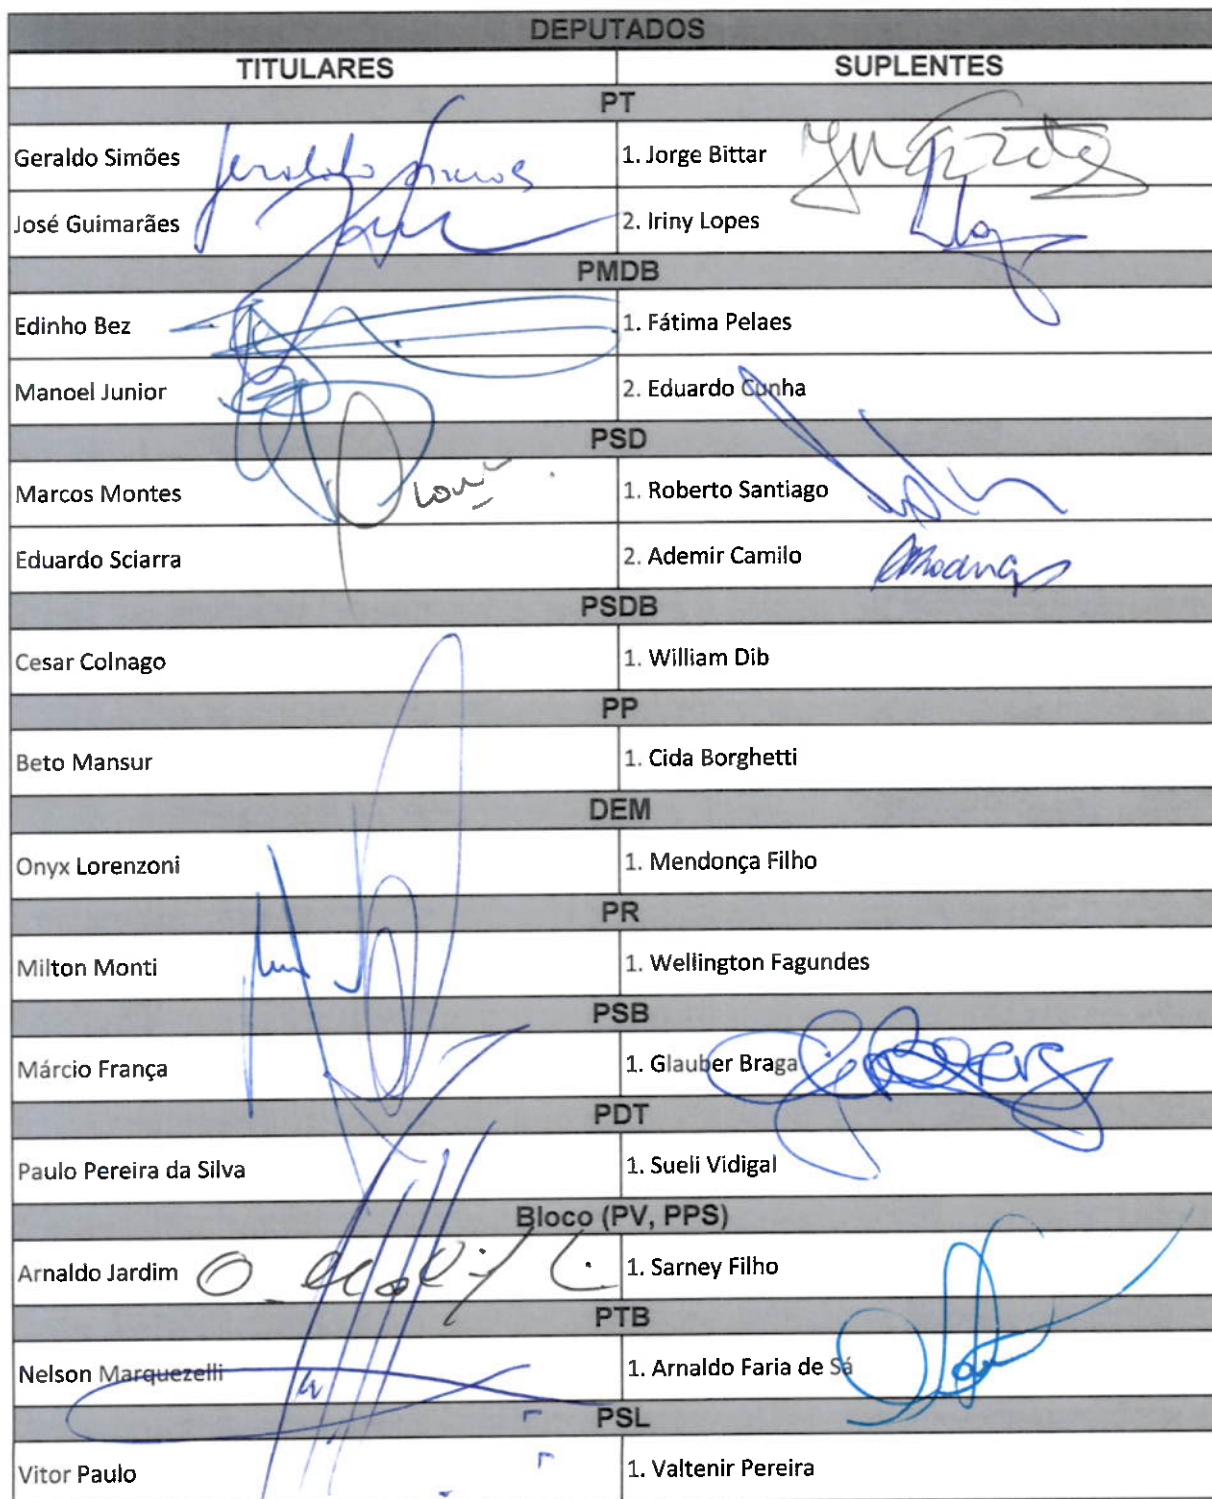 DEPUTADOS
TITULARES SUPLENTES
PT
Geraldo Simões 1. Jorge Bittar
José Guimarães 2. Iriny Lopes
PMDB
Edinho Bez 1. Fátima Pelaes
Manoel Junior 2. Eduardo Cunha
PSD
Marcos Montes 1. Roberto Santiago
Eduardo Sciarra 2. Ademir Camilo
PSDB
Cesar Colnago 1. William Dib
PP
Beto Mansur 1. Cida Borghetti
DEM
Onyx Lorenzoni 1. Mendonça Filho
PR
Milton Monti 1. Wellington Fagundes
PSB
Márcio França 1. Glauber Braga
PDT
Paulo Pereira da Silva 1. Sueli Vidigal
Bloco (PV, PPS)
Arnaldo Jardim 1. Sarney Filho
PTB
Nelson Marquezelli 1. Arnaldo Faria de Sá
PSL
Vitor Paulo 1. Valtenir Pereira